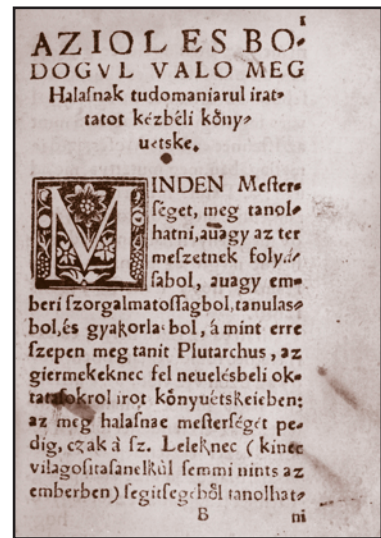 1
AZ IOL ES BO⸗
DOGVL VALO MEG
Halaſnak tudomaniarul irat⸗
tatot kézbéli kőny⸗
uetske.
MINDEN Meſter⸗
ſéget, meg tanol⸗
hatni, auagy az ter
meſzetnek folyá⸗
ſabol, auagy em⸗
beri ſzorgalmatoſſagbol, tanulas⸗
bol, és gyakorlasbol, á mint erre
ſzepen meg tanit Plutarchus, az
giermekeknec fel neuelésbeli ok⸗
tatasokrol irot kőnyuétskeieben:
az meg halaſnac meſterſégét pe⸗
dig, czak à ſz. Leleknec (kinec
vilagoſitaſanelkűl ſemmi nints az
emberben) ſegitſegeből tanolhat⸗
B ni